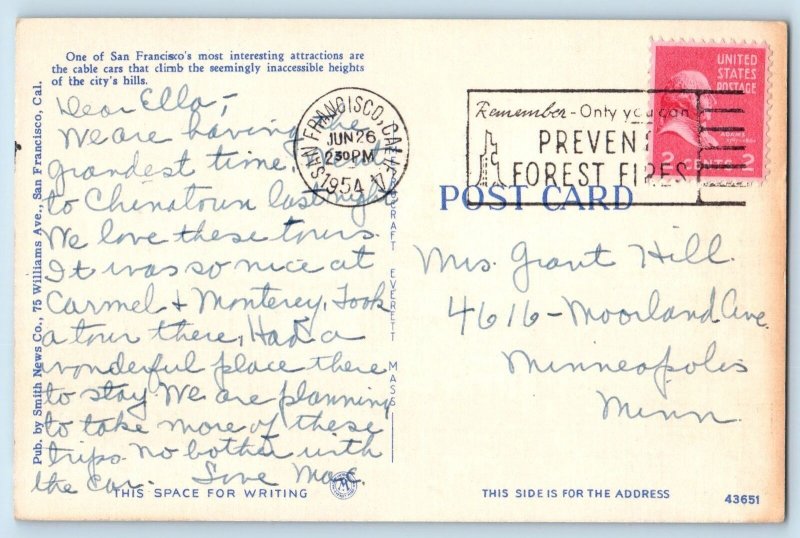 One of San Francisco's most interesting attractions are
the cable cars that climb the seemingly inaccessible heights
of the city's hills.
Dear Ella,-
We are having the
grandest time. Went
to Chinatown last night
We love these tours.
It was so nice at
Carmel + Monterey. Took
a tour there, Had a
wonderful place there
to stay We are planning
to take more of these
trips no bother with
the car. Love Mac.
THIS SPACE FOR WRITING
Pub. by Smith News Co., 75 Williams Ave., San Francisco, Cal.
CRAFT EVERETT MASS
SAN FRANCISCO, CALIF.
JUN 26
230 PM
1954
Remember - Only you can
PREVENT
FOREST FIRES
UNITED
STATES
POSTAGE
ADAMS
2 CENTS 2
POST CARD
Mrs. Grant Hill.
4616 - Moorland Ave.
Minneapolis
Minn.
THIS SIDE IS FOR THE ADDRESS
43651